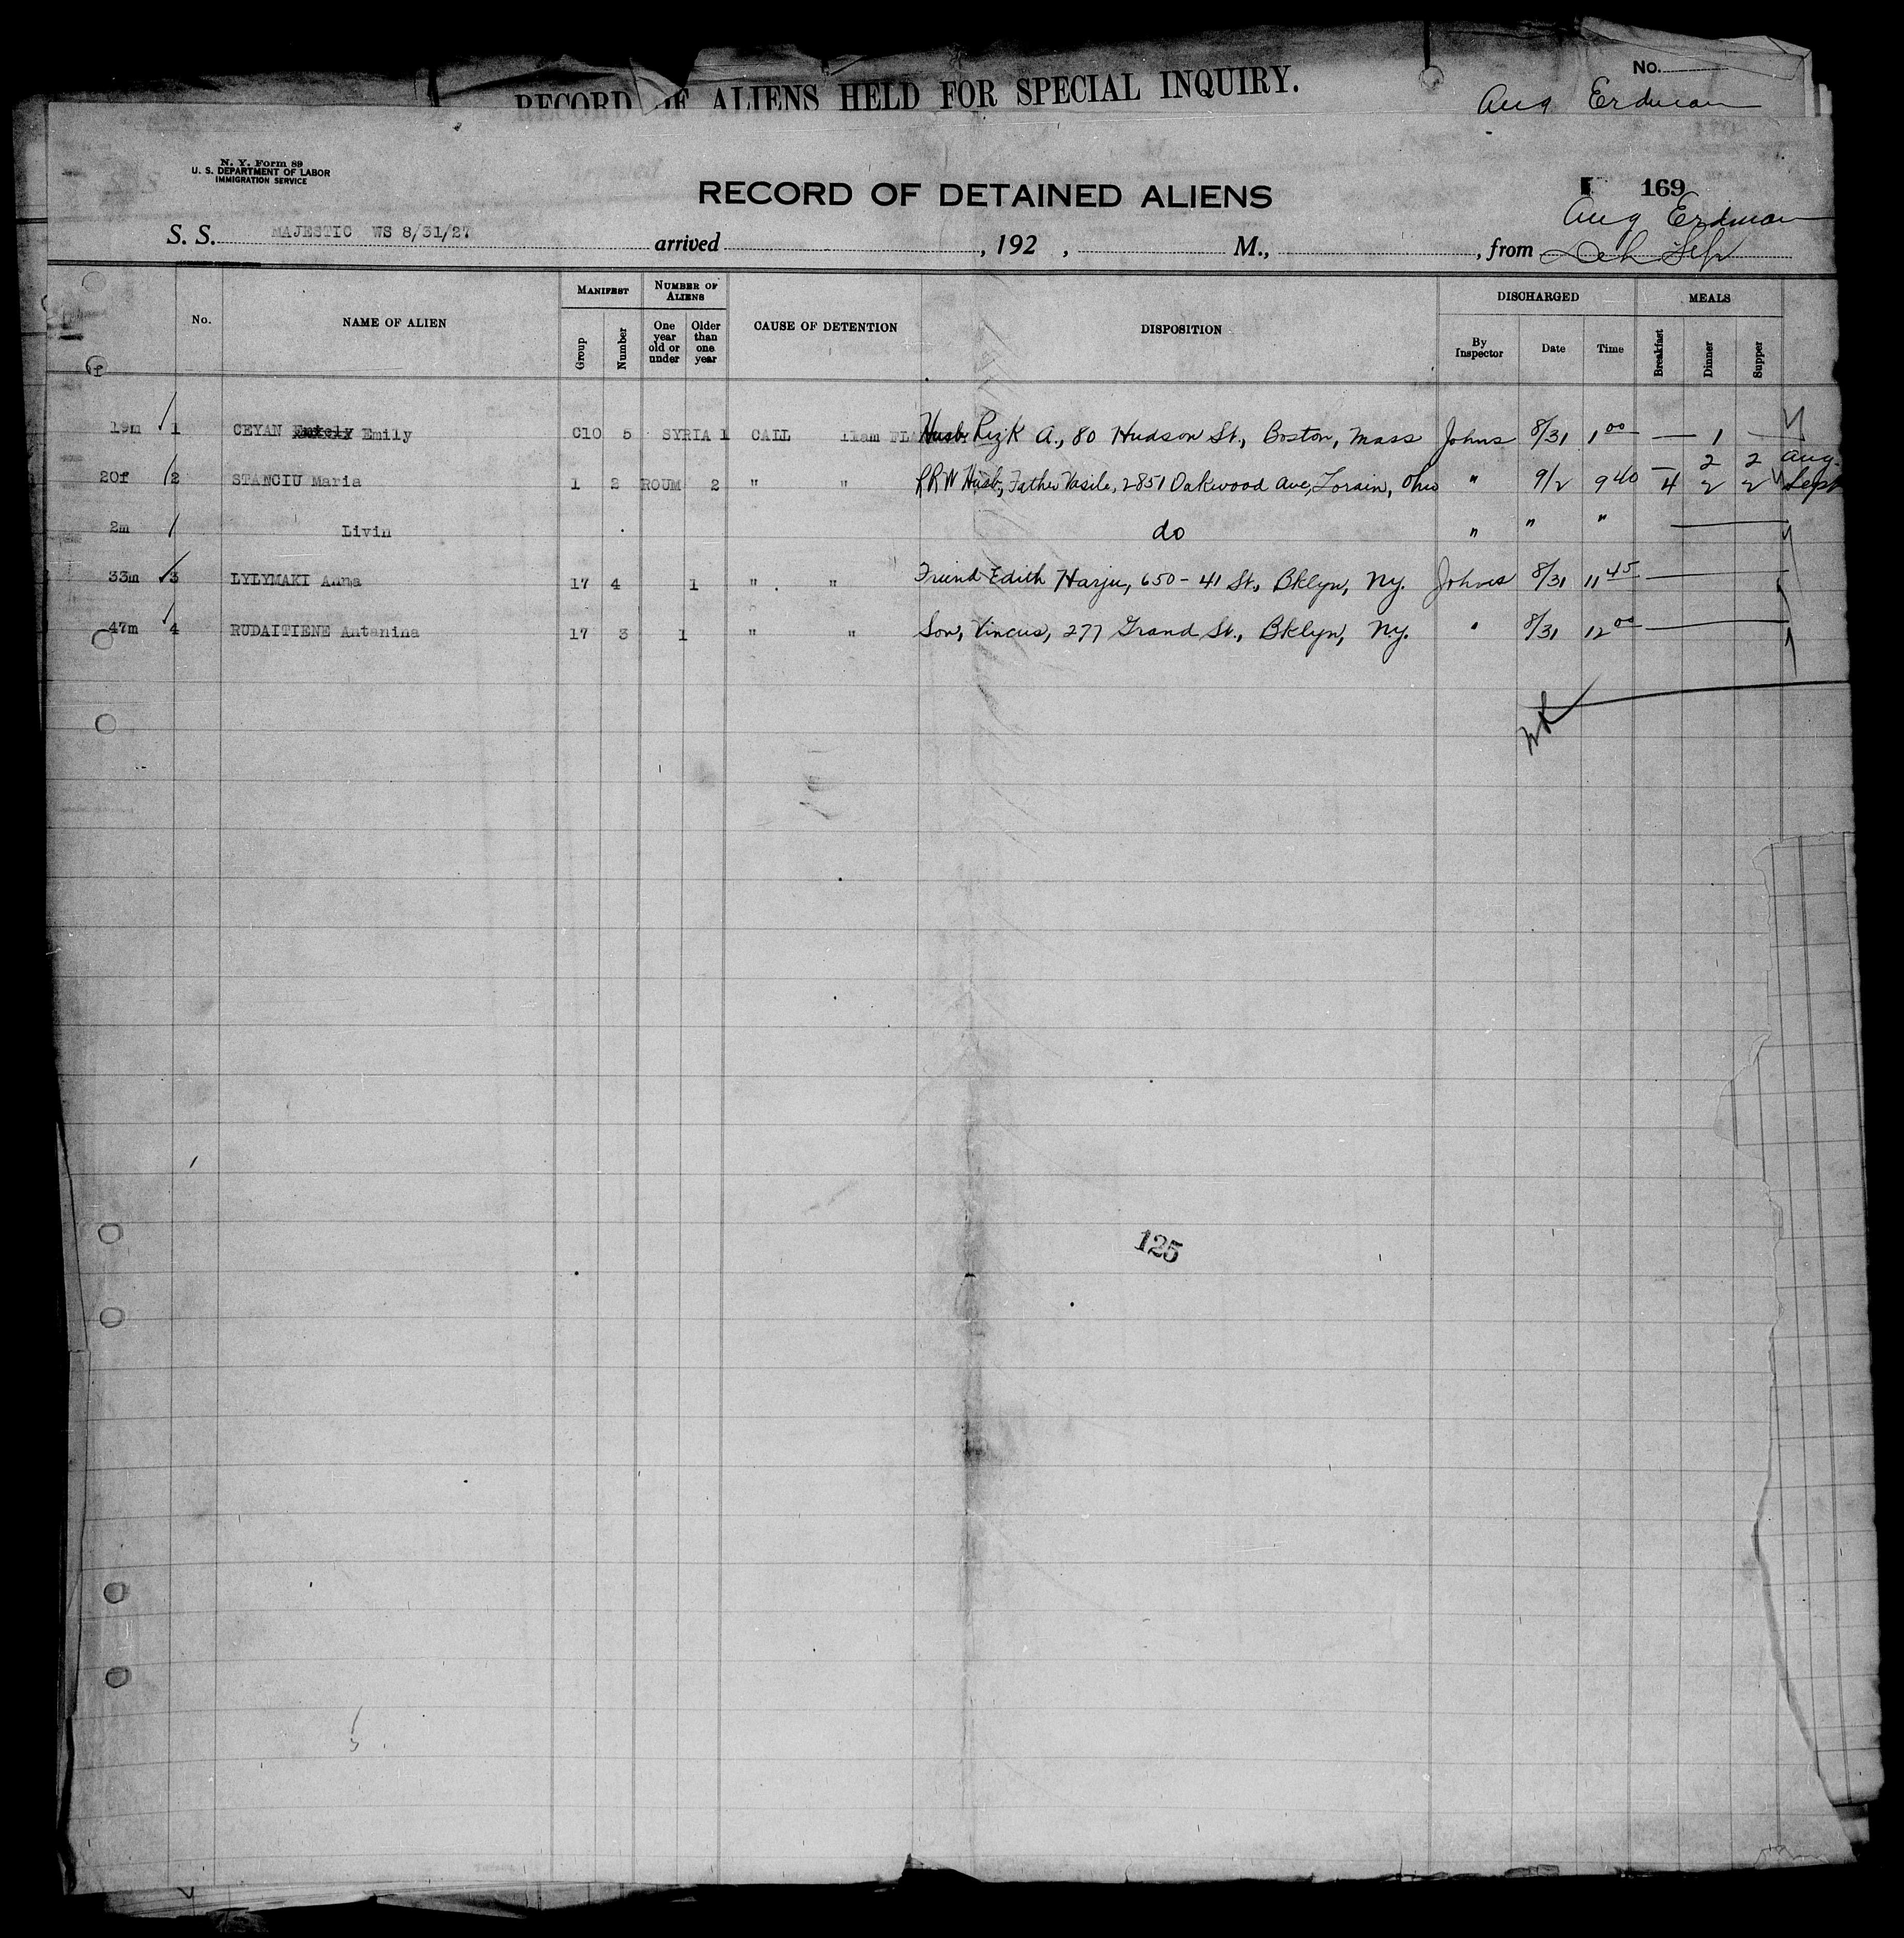 No.
RECORD OF ALIENS HELD FOR SPECIAL INQUIRY.
Aug Erdman
N. Y. Form 89
U. S. DEPARTMENT OF LABOR
IMMIGRATION SERVICE
RECORD OF DETAINED ALIENS
169
Aug Erdman
S. S. MAJESTIC WS 8/31/27 arrived , 192 , M., , from
No. NAME OF ALIEN MANIFEST Group Number NUMBER OF ALIENS One year old or under Older than one year CAUSE OF DETENTION DISPOSITION DISCHARGED By Inspector Date Time MEALS Breakfast Dinner Supper
19m 1 CEYAN Emily C10 5 SYRIA 1 CALL 11am Husb. Rizk A., 80 Hudson St., Boston, Mass Johns 8/31 1 00 — 1 —
— 2 2 Aug.
20f 2 STANCIU Maria 1 2 ROUM 2 " " RRN Husb, Father Vasile, 2851 Oakwood Ave, Lorain, Ohio " 9/2 9 40 4 2 2 Sept
2m Livin do " " "
33m 3 LYLYMAKI Anna 17 4 1 " " Friend Edith Harju, 650 - 41 St., Bklyn, Ny. Johns 8/31 11 45
47m 4 RUDAITIENE Antanina 17 3 1 " " Son, Vincus, 277 Grand St., Bklyn, N.y. " 8/31 12 00
125